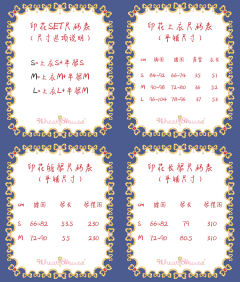 印花SET尺码表
(尺寸选项说明)
S=上衣S+半裙S
M=上衣M+半裙M
L=上衣L+半裙M
印花上衣尺码表
(平铺尺寸)
cm 胸围 腰围 肩宽 衣长
S 84-92 66-74 35 51
M 90-98 72-80 36 52
L 96-104 78-86 37 53
印花短裙尺码表
(平铺尺寸)
cm 腰围 裙长 裙摆围
S 66-82 53.5 230
M 72-90 55 230
印花长裙尺码表
(平铺尺寸)
cm 腰围 裙长 裙摆围
S 66-82 79 310
M 72-90 80.5 310